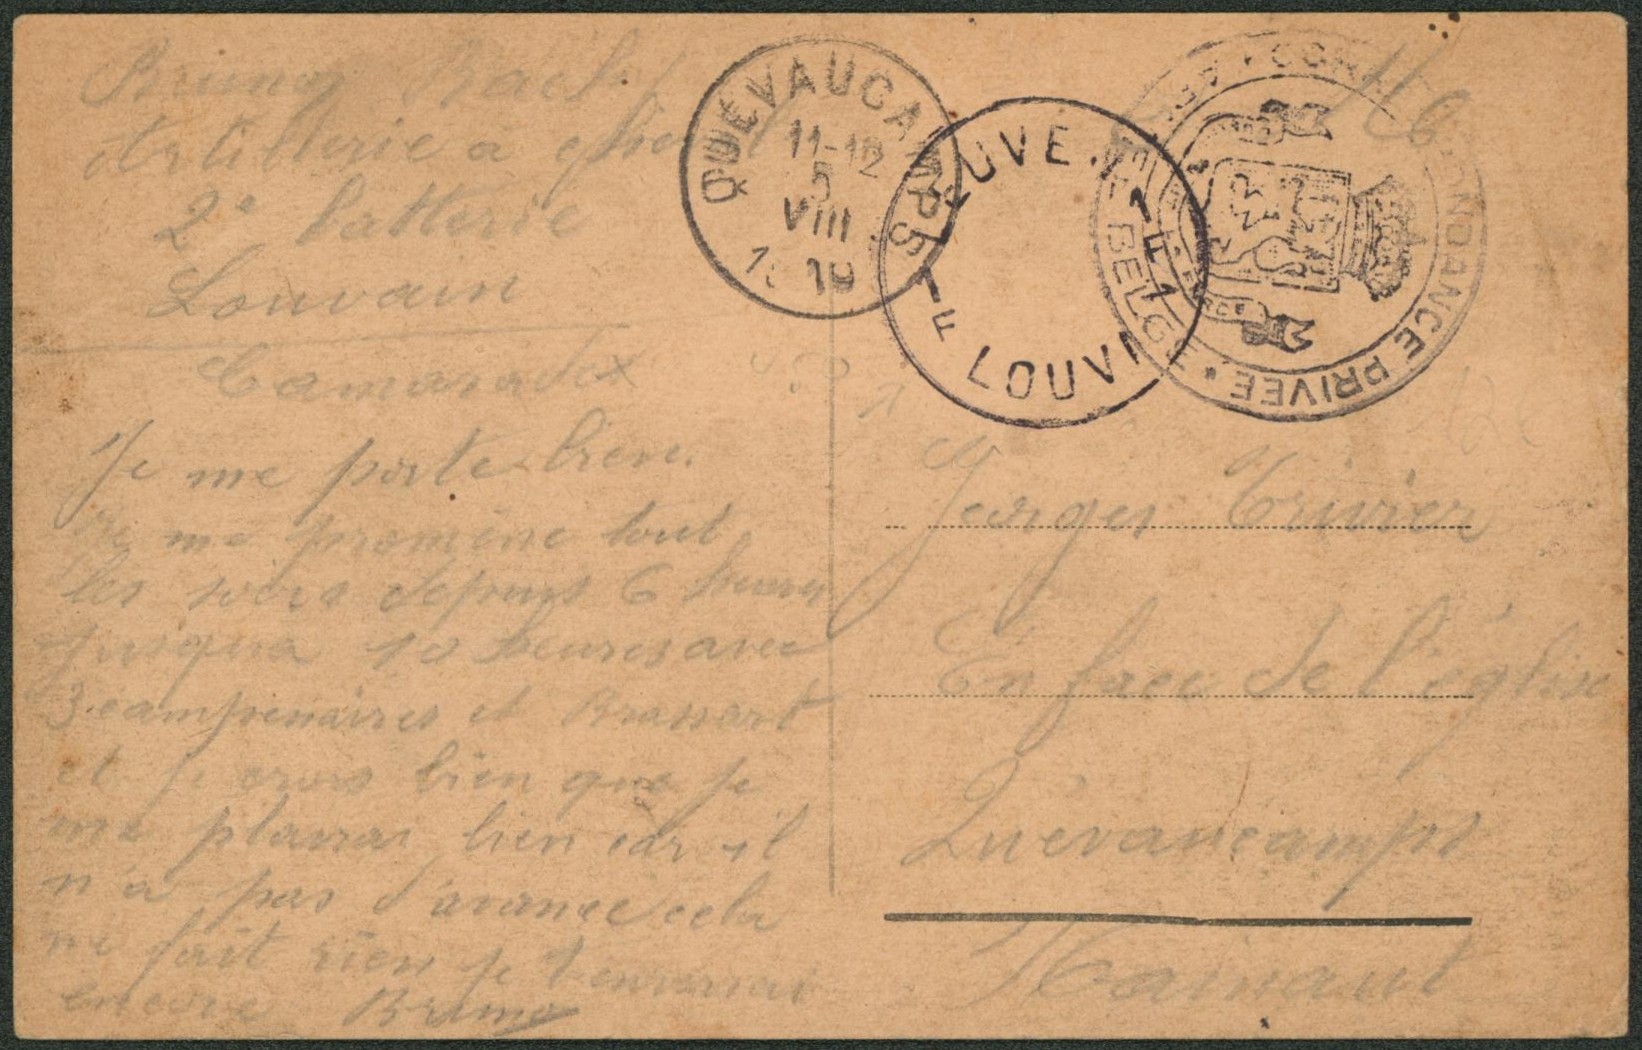 Bruno
Artillerie a
2e batterie
Louvain
Camarade
Je me porte bien.
Je me promène tout
les soirs depuis 6 heures
jusqua 10 heures avec
3 campenaires et Brassart
et je crois bien que je
me plairai bien car il
n'a pas d'avance cela
ne fait rien je
encore Bruno
QUEVAUCAMPS
11-12
5
VIII
1919
LEUVEN 1
1F
LOUVAIN
1F
CORRESPONDANCE PRIVEE
BELGE
Mr
Georges Trivier
En face de l'église
Quevaucamps
Hainaut